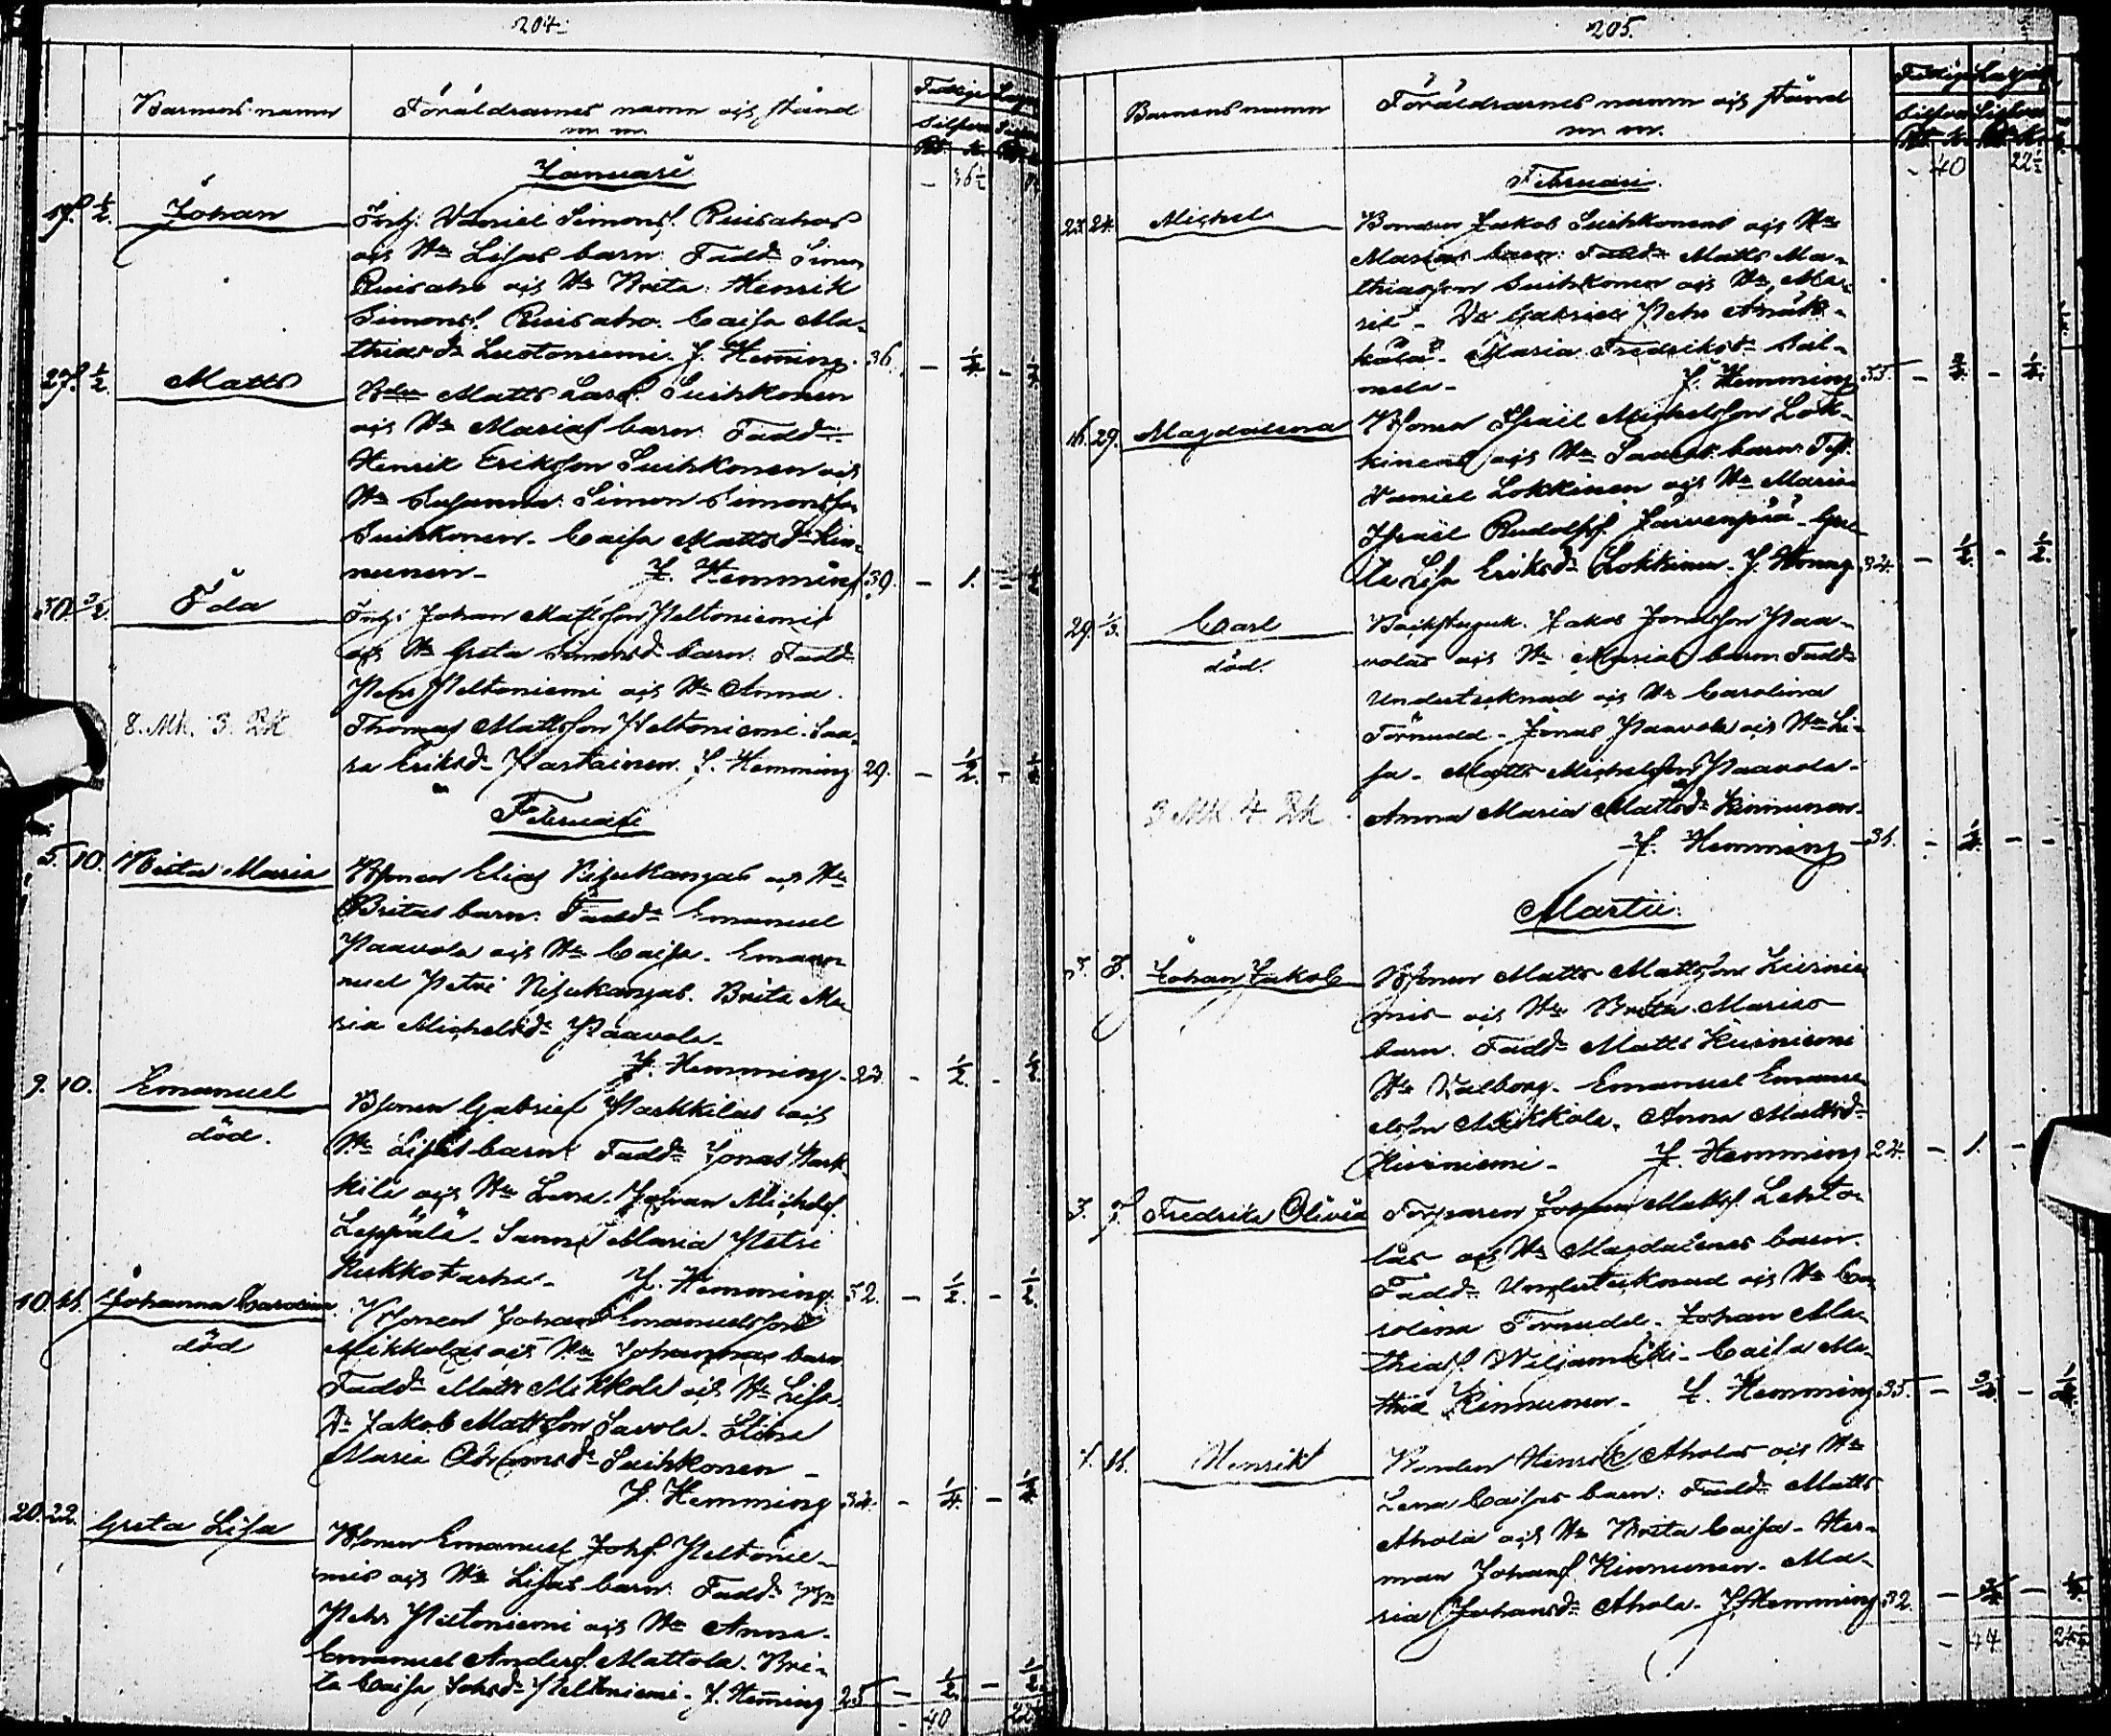 204.
Barnens namn Föräldrarnes namn och stånd
m m.
Silfver
Januari
36½
17. ½. Johan Inh: Daniel Simons. Ruisahos
och Hu Lisas barn: Fadd: Simon
Ruisaho och Hu Brita: Henrik
Simons. Ruisaho. Caisa Ma-
thiasdr Luotoniemi. J. Hemming. 36. - ¼ -
27. ½. Matts Bdn Matts Lars. Suihkonen
och Hu Marias barn: Fadd:
Henrik Eriksson Suihkonen och
Hu Susanna: Simon Simonsson
Suihkonen. Caisa Mattsdr Kin-
nunen. J. Hemming 39. - 1.
30. 3/2. Ida Inh: Johan Mattsson Peltoniemis
och Hu Greta Simonsdr barn: Fadd:
Pehr Peltoniemi och Hu Anna.
8. Mk. 3. Rk. Thomas Mattsson Peltoniemi. Saa-
ra Eriksdr Partainen. J. Hemming 29. - ½ -
Februari
5. 10. Brita Maria Bonen Elias Nisukangas och Hu
Britas barn: Fadd: Emanuel
Paavola och Hu Caisa. Emanu-
nuel Petri Nisukangas. Brita Ma-
ria Michelsdr Paavola.
J. Hemming. 23. - ½. - ½
9. 10. Emanuel Bonen Gabriel Parkkilas och
död. Hu Lisas barn: Fadd: Jonas Park-
kila och Hu Lena. Johan Michels.
Leppälä. Sanna Maria Petri
Kukkotarha. J. Hemming. 52. - ½. - ½.
10. 11. Johanna Carolina Bonen Johan Emanuelsson
död Mikkolas och Hu Johannas barn
Fadd: Matts Mikkola och Hu Lisa.
Dr Jakob Mattsson Savola. Stina
Maria Abramsdr Suihkonen.
J. Hemming 34. - ¼. - ¼
20. 22. Greta Lisa Bonen Emanuel Johs. Peltonie-
mis och Hu Lisas barn: Fadd:
Pehr Peltoniemi och Hu Anna.
Emanuel Anders. Mattola. Bri-
ta Caisa Johsdr Peltoniemi. J. Hemming 25 - ½. - ½
40 22
205.
Barnens namn Föräldrarnes namn och stånd
m m.
Silfver
- 40 22½
Februari.
23. 24. Michel Bonden Jakob Suihkonens och Hu
Marias barn: Fadd: Matts Ma-
thiasson Suihkonen och Hu Ma-
ria. Dr Gabriel Pehr Anäk-
kälä. Maria Fredriksdr Sal-
mela. J. Hemming 55. - ¾. - ¼.
16. 29. Magdalena Bonen Israel Michelsson Lok-
kinens och Hu Saaras barn: Test.
Daniel Lokkinen och Hu Maria
Israel Rudolfs. Järvenpää. Gre-
ta Lisa Eriksdr Lokkinen. J. Hemng 34. - ½ - ½.
29. 1/3. Carl Backstuguk. Jakob Jonasson Paa-
död. volas och Hu Marias barn: Fadd:
Undertecknad och Hu Carolina
Törnudd. Jonas Paavola och Hu Li-
sa. Matts Michelsson Paavola.
3 Mk. 4. Rk. Anna Maria Mattsdr Kinnunen.
J. Hemming 31. - ¼. - -
Martii.
Johan Jakob Bonen Matts Mattsson Kiiskinie-
mis och Hu Brita Marias
barn. Fadd: Matts
Hu Walborg. Emanuel Emanu-
elsson Mikkola. Anna Mattsdr
J. Hemming 24. - 1. -
3. 7. Fredrika Olivia Torparen Johan Matts. Lehto-
las och Hu Magdalenas barn.
Fadd: Undertecknad och Hu Ca-
rolina Törnudd. Johan Ma-
thias. Wiljamäki. Caisa Ma-
thia Kinnunen. J. Hemming 35. - ¾. - ¼
7. 11. Henrik Bonden Henrik Aholas och Hu
Lena Caisas barn: Fadd: Matts
Ahola och Hu Brita Caisa. Her-
man Johans. Kinnunen. Ma-
ria Johansdr Ahola. J. Hemming 32. - ¾ - ¼
- 44 24½